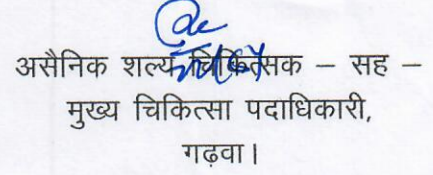 असैनिक शल्य चिकित्सक – सह –
मुख्य चिकित्सा पदाधिकारी,
गढ़वा।